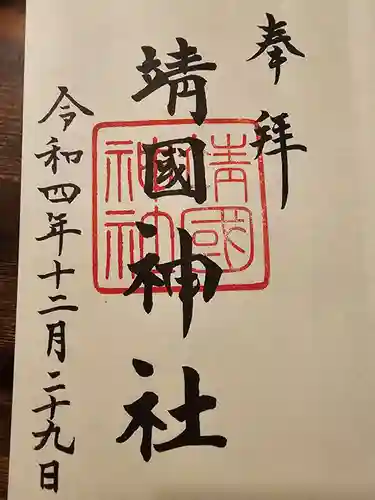 奉拝
靖國神社
靖國
神社
令和四年十二月二十九日